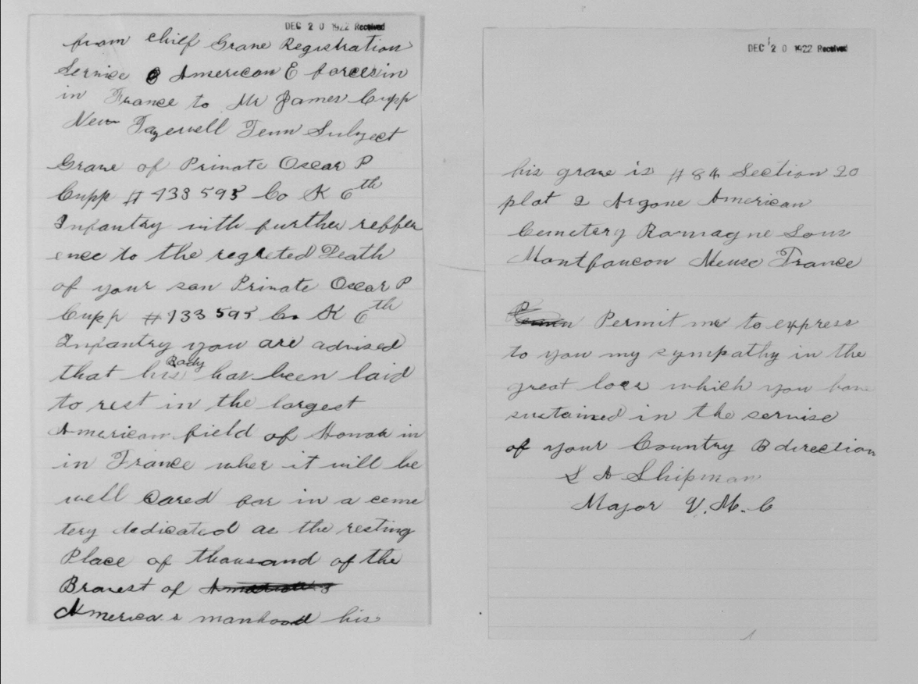 DEC 20 1922 Received
from chief Grave Registration
Service American E forces in
in France to Mr James Cupp
New Tazewell Tenn Subject
Grave of Private Oscar P
Cupp # 933 595 Co K 6th
Infantry with further reffer
ence to the regreted Death
of your son Private Oscar P
Cupp # 933 595 Co K 6th
Infantry you are advised
that his Body has been laid
to rest in the largest
American field of Honor in
in France wher it will be
well cared for in a ceme
tery dedicated as the resting
Place of thousand of the
Bravest of
America,s manhood his
DEC 20 1922 Received
his grave is # 84 Section 20
plot 2 Argone American
Cemetery Romagne Sous
Montfaucon Meuse France
Permit me to express
to you my sympathy in the
great loss which you have
sustained in the servise
of your Country B direction
S A Shipman
Major V. M. C